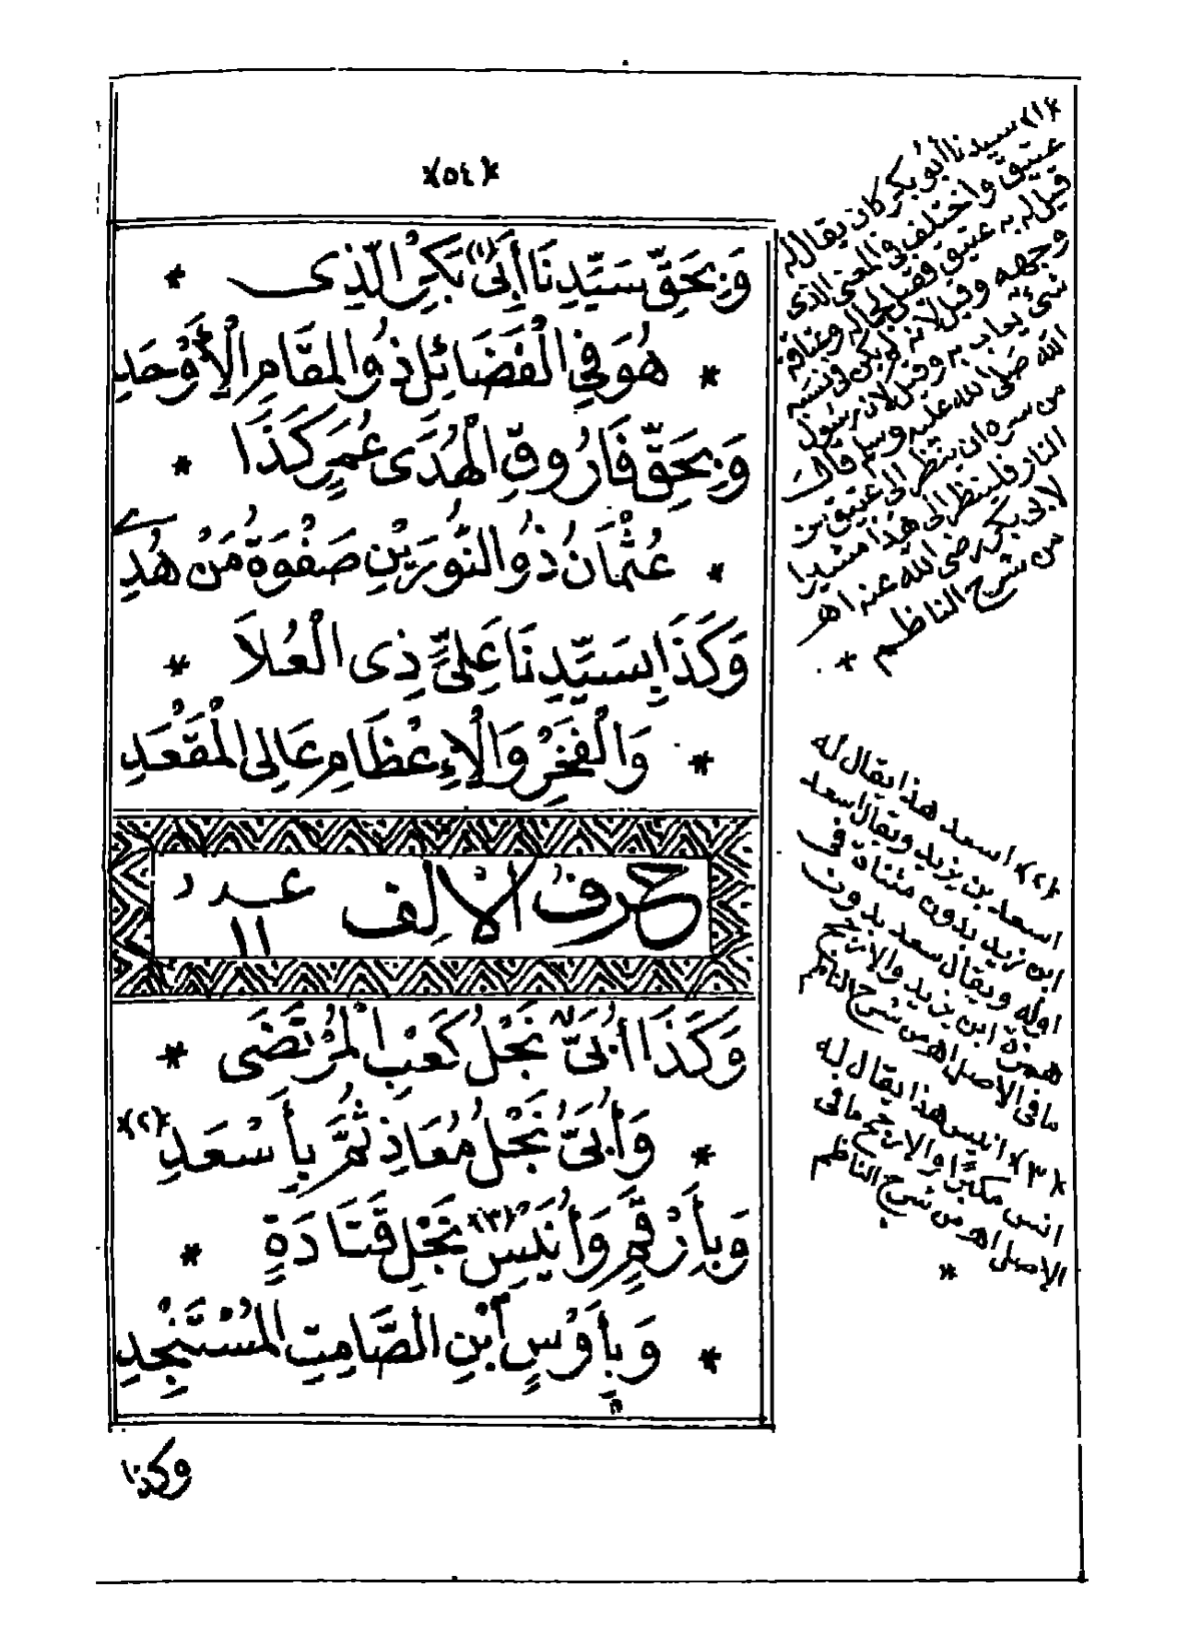 *(٥٤)*
وَبِحَقِّ سَيِّدِنَا أَبِى(١) بَكْرِ الَّذِى *
* هُوَ فِي الْفَضَائِلِ ذُو الْمَقَامِ الْأَوْحَدِ
وَبِحَقِّ فَارُوقِ الْهُدَى عُمَرٍ كَذَا *
* عُثْمَانُ ذُو النُّورَيْنِ صَفْوَةُ مَنْ هُدِى
وَكَذَا بِسَيِّدِنَا عَلِىٍّ ذِى الْعُلَا *
* وَالْفَخْرِ وَالْإِعْظَامِ عَالِى الْمَقْعَدِ
حرف الالف عدد ١١
وَكَذَا أُبَىّ نَجْلُ كَعْبِ الْمُرْتَضَى *
* وَأُبَىُّ نَجْلُ مُعَاذِ ثُمَّ بِأَسْعَدِ *(٢)*
وَبِأَرْقَمٍ وَأُنَيْسٍ *(٣)* نَجْلِ قَتَادَةٍ *
* وَبِأَوْسٍ ابْنِ الصَّامِتِ الْمُسْتَنْجِدِ
وكذا
*(١) سيدنا أبو بكر كان يقال له
عتيق واختلف فى المعنى الذى
قيل له به عتيق فقيل لجماله وعتاقة
وجهه وقيل لانه لم يكن فى نسبه
شئ يعاب به وقيل لان رسول
الله صلى الله عليه وسلم قال
من سره ان ينظر الى عتيق من
النار فلينظر الى هذا مشيرا
لابى بكر رضى الله عنه اهـ
من شرح الناظم *
*(٢)* اسعد هذا يقال له
اسعد بن يزيد ويقال اسعد
ابن زيد بدون مثناة فى
اوله ويقال سعد بدون
همزة ابن يزيد والارجح
ما فى الاصل اهـ من شرح الناظم
*(٣)* انيس هذا يقال له
انس مكبرا والارجح ما فى
الاصل اهـ من شرح الناظم
*